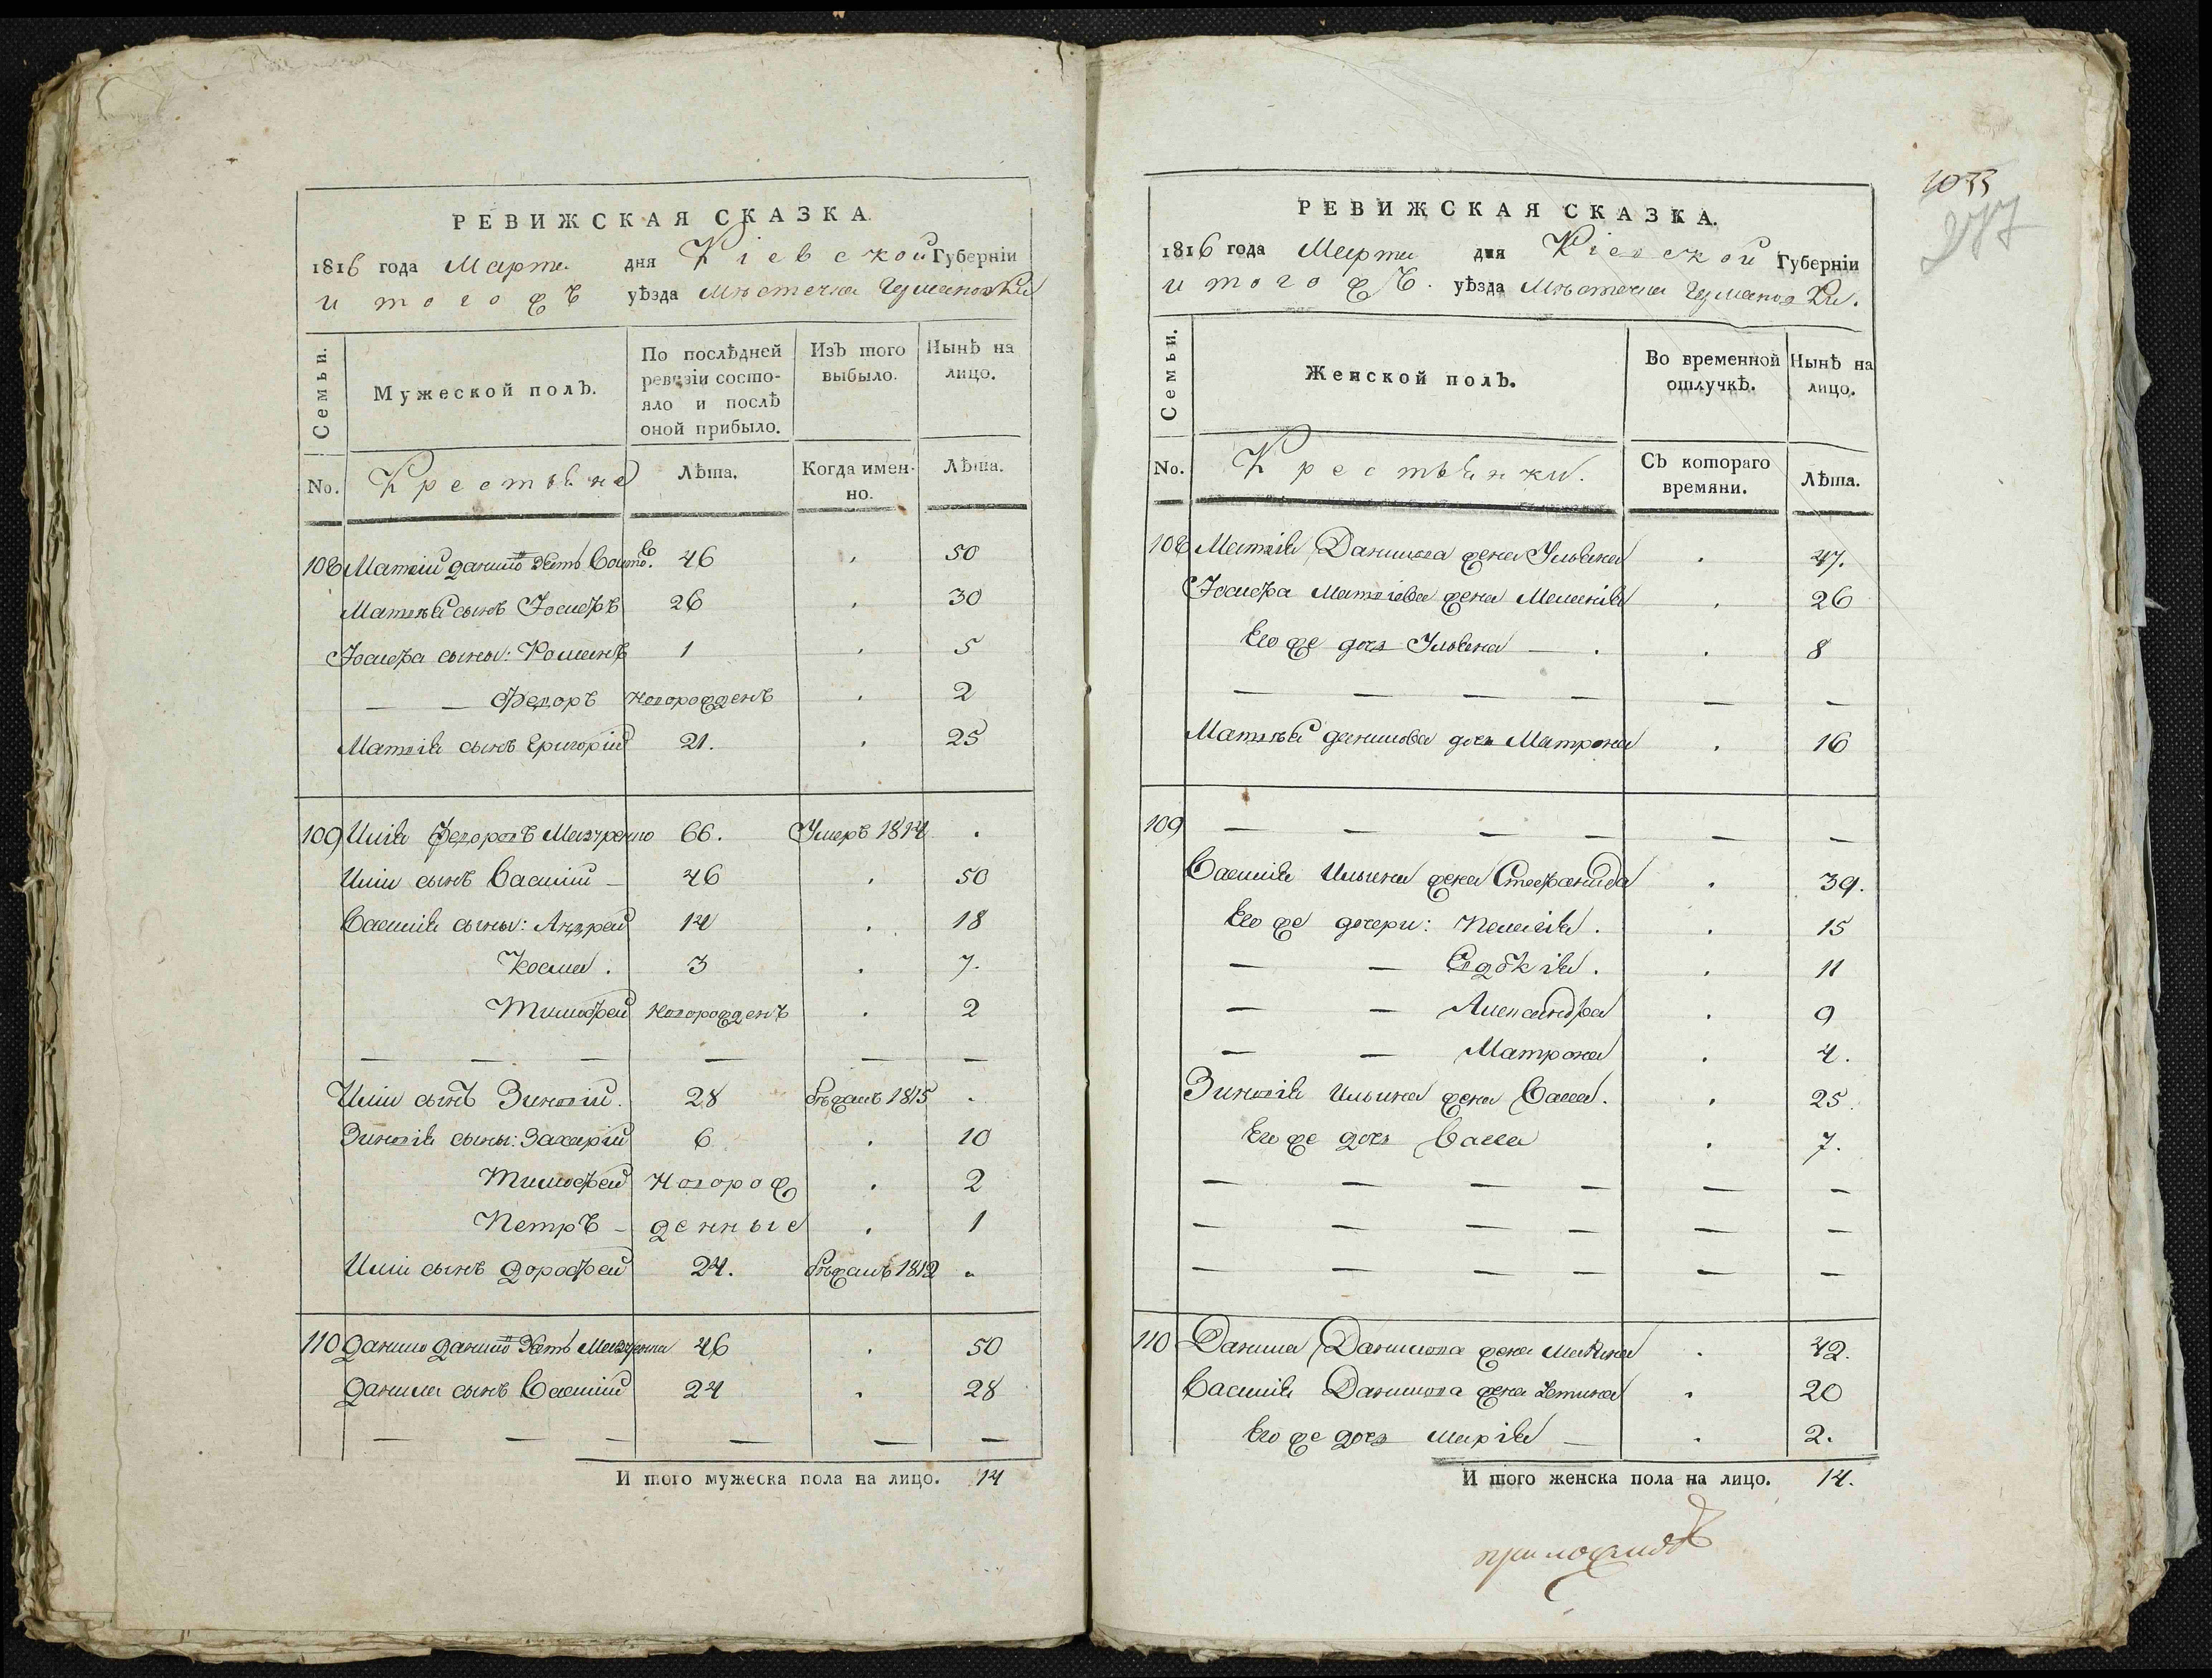 РЕВИЖСКАЯ СКАЗКА.
1816 года Марта дня Кіевской Губерніи
и того жъ уѣзда Мѣстечка
Семьи.
Мужеской полъ.
По послѣдней ревизіи состояло и послѣ оной прибыло.
Изъ того выбыло.
Нынѣ на лицо.
No.
Крестьяне
Лѣта.
Когда именно.
Лѣта.
108 Матвій Данило Зять 46 50
Матвѣя сынъ Іосифъ 26 30
Іосифа сыны: Романъ 1 5
— — Федоръ новорожденъ 2
Матвія сынъ Григорій 21. 25
109 Илія Федоровъ Мазуренко 66. Умеръ 1814
Иліи сынъ Василій — 46 50
Василія сыны: Андрей 14 18
Косма. 3 7.
Тимофей новорожденъ 2
— — — — — —
Иліи сынъ Зиновій. 28 бѣжалъ 1815
Зиновія сыны: Захарій 6 10
Тимофей новорож 2
Петръ — денные 1
Иліи сынъ Дорофей 24. бѣжалъ 1812
110 Данило Данило Зять Мазуренка 46 50
Данила сынъ Василій 24 28
— — — — — —
И того мужеска пола на лицо. 14
1055
277
РЕВИЖСКАЯ СКАЗКА.
1816 года Марта дня Кіевской Губерніи
и того жъ. уѣзда Мѣстечка
Семьи.
Женской полъ.
Во временной отлучкѣ.
Нынѣ на лицо.
No.
Крестьянки.
Съ котораго времяни.
Лѣта.
108 Матвія Данилова жена Ульяна 47.
Іосифа Матвіева жена Меланія 26
Его же дочь Ульяна — 8
— — — — — —
Матвѣя Данилова дочь Матрона 16
109 — — — — — —
Василія Ильина жена Стефанида 39.
Его же дочери: Пелагія. 15
— — Евдокія. 11
— — Александра 9
— — Матрона 4.
Зиновія Ильина жена Васса. 25.
Его же дочь Васса 7.
— — — — — —
— — — — — —
— — — — — —
110 Данила Данилова жена 42.
Василія Данилова жена 20
Его же дочь Марія — 2.
И того женска пола на лицо. 14.